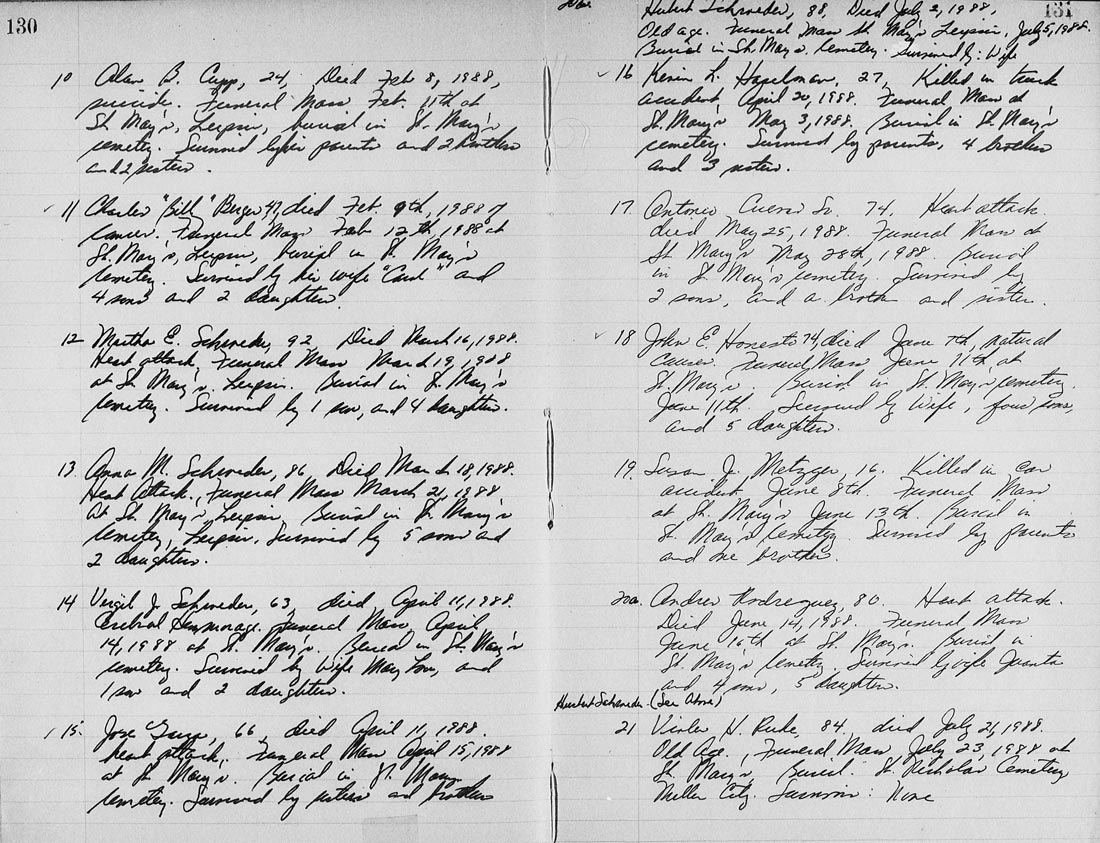 130
10 Alan B. Cupp, 24, Died Feb 8, 1988,
suicide. Funeral Mass Feb. 11th at
St. Mary's, Leipsic, burial in St. Mary's
cemetery. Survived by his parents and 2 brothers
and 2 sisters.
11 Charles "Bill" Berger 47, died Feb. 9th, 1988 of
cancer. Funeral Mass Feb 12th, 1988 at
St. Mary's, Leipsic, burial in St. Mary's
Cemetery. Survived by his wife "Carol" and
4 sons and 2 daughters.
12 Martha E. Schroeder, 92, Died March 16, 1988.
Heart attack, Funeral Mass March 19, 1988
at St. Mary's. Leipsic. Burial in St. Mary's
Cemetery. Survived by 1 son, and 4 daughters.
13 Anna M. Schroeder, 86, Died March 18, 1988.
Heart Attack. Funeral Mass March 21, 1988
At St. Mary's, Leipsic, Burial in St. Mary's
Cemetery, Leipsic. Survived by 5 sons and
2 daughters.
14 Virgil J. Schroeder, 63, died April 11, 1988.
Cerebral Hemmorage. Funeral Mass April
14, 1988 at St. Mary's. Burial in St. Mary's
cemetery. Survived by wife Mary Lou, and
1 son and 2 daughters.
15. Jose 66, died April 11, 1988.
heart attack, Funeral Mass April 15, 1988
at St. Mary's. Burial in St. Marys
cemetery. Survived by sisters and brothers
131
20b. Hubert Schroeder, 88, Died July 2, 1988,
Old age. Funeral Mass St. Mary's Leipsic, July 5, 1988.
Burial in St. Mary's Cemetery. Survived by: Wife
16 Kevin L. Haselman, 27, Killed in truck
accident April 30, 1988. Funeral Mass at
St. Mary's May 3, 1988. Burial in St. Mary's
cemetery. Survived by parents, 4 brothers
and 3 sisters.
17. Antonio Cuevas Sr. 74. Heart attack.
died May 25, 1988. Funeral Mass at
St Mary's May 28th, 1988. Burial
in St. Mary's Cemetery. Survived by
2 sons, and a brother and sister.
18 John E. Honesto 74, died June 7th, natural
causes. Funeral Mass June 11th, at
St. Mary's. Burial in St. Mary's Cemetery.
June 11th. Survived by Wife, four sons,
and 5 daughters.
19. Susan J. Metzger, 16. Killed in car
accident June 8th. Funeral Mass
at St. Mary's June 13th. Burial in
St. Mary's Cemetery. Survived by parents
and one brother.
20a. Andres Rodreguez, 80. Heart attack.
Died June 14, 1988. Funeral Mass
June 16th at St. Mary's. Burial in
St. Mary's Cemetery. Survived by wife Juanita
and 4 sons, 5 daughters.
Hurbert Schroeder (See Above)
21 Violer H. Ruhe, 84, died July 21, 1988.
Old Age. Funeral Mass, July 23, 1988 at
St. Mary's, Burial: St. Nicholas Cemetery
Miller City. Survivors: None